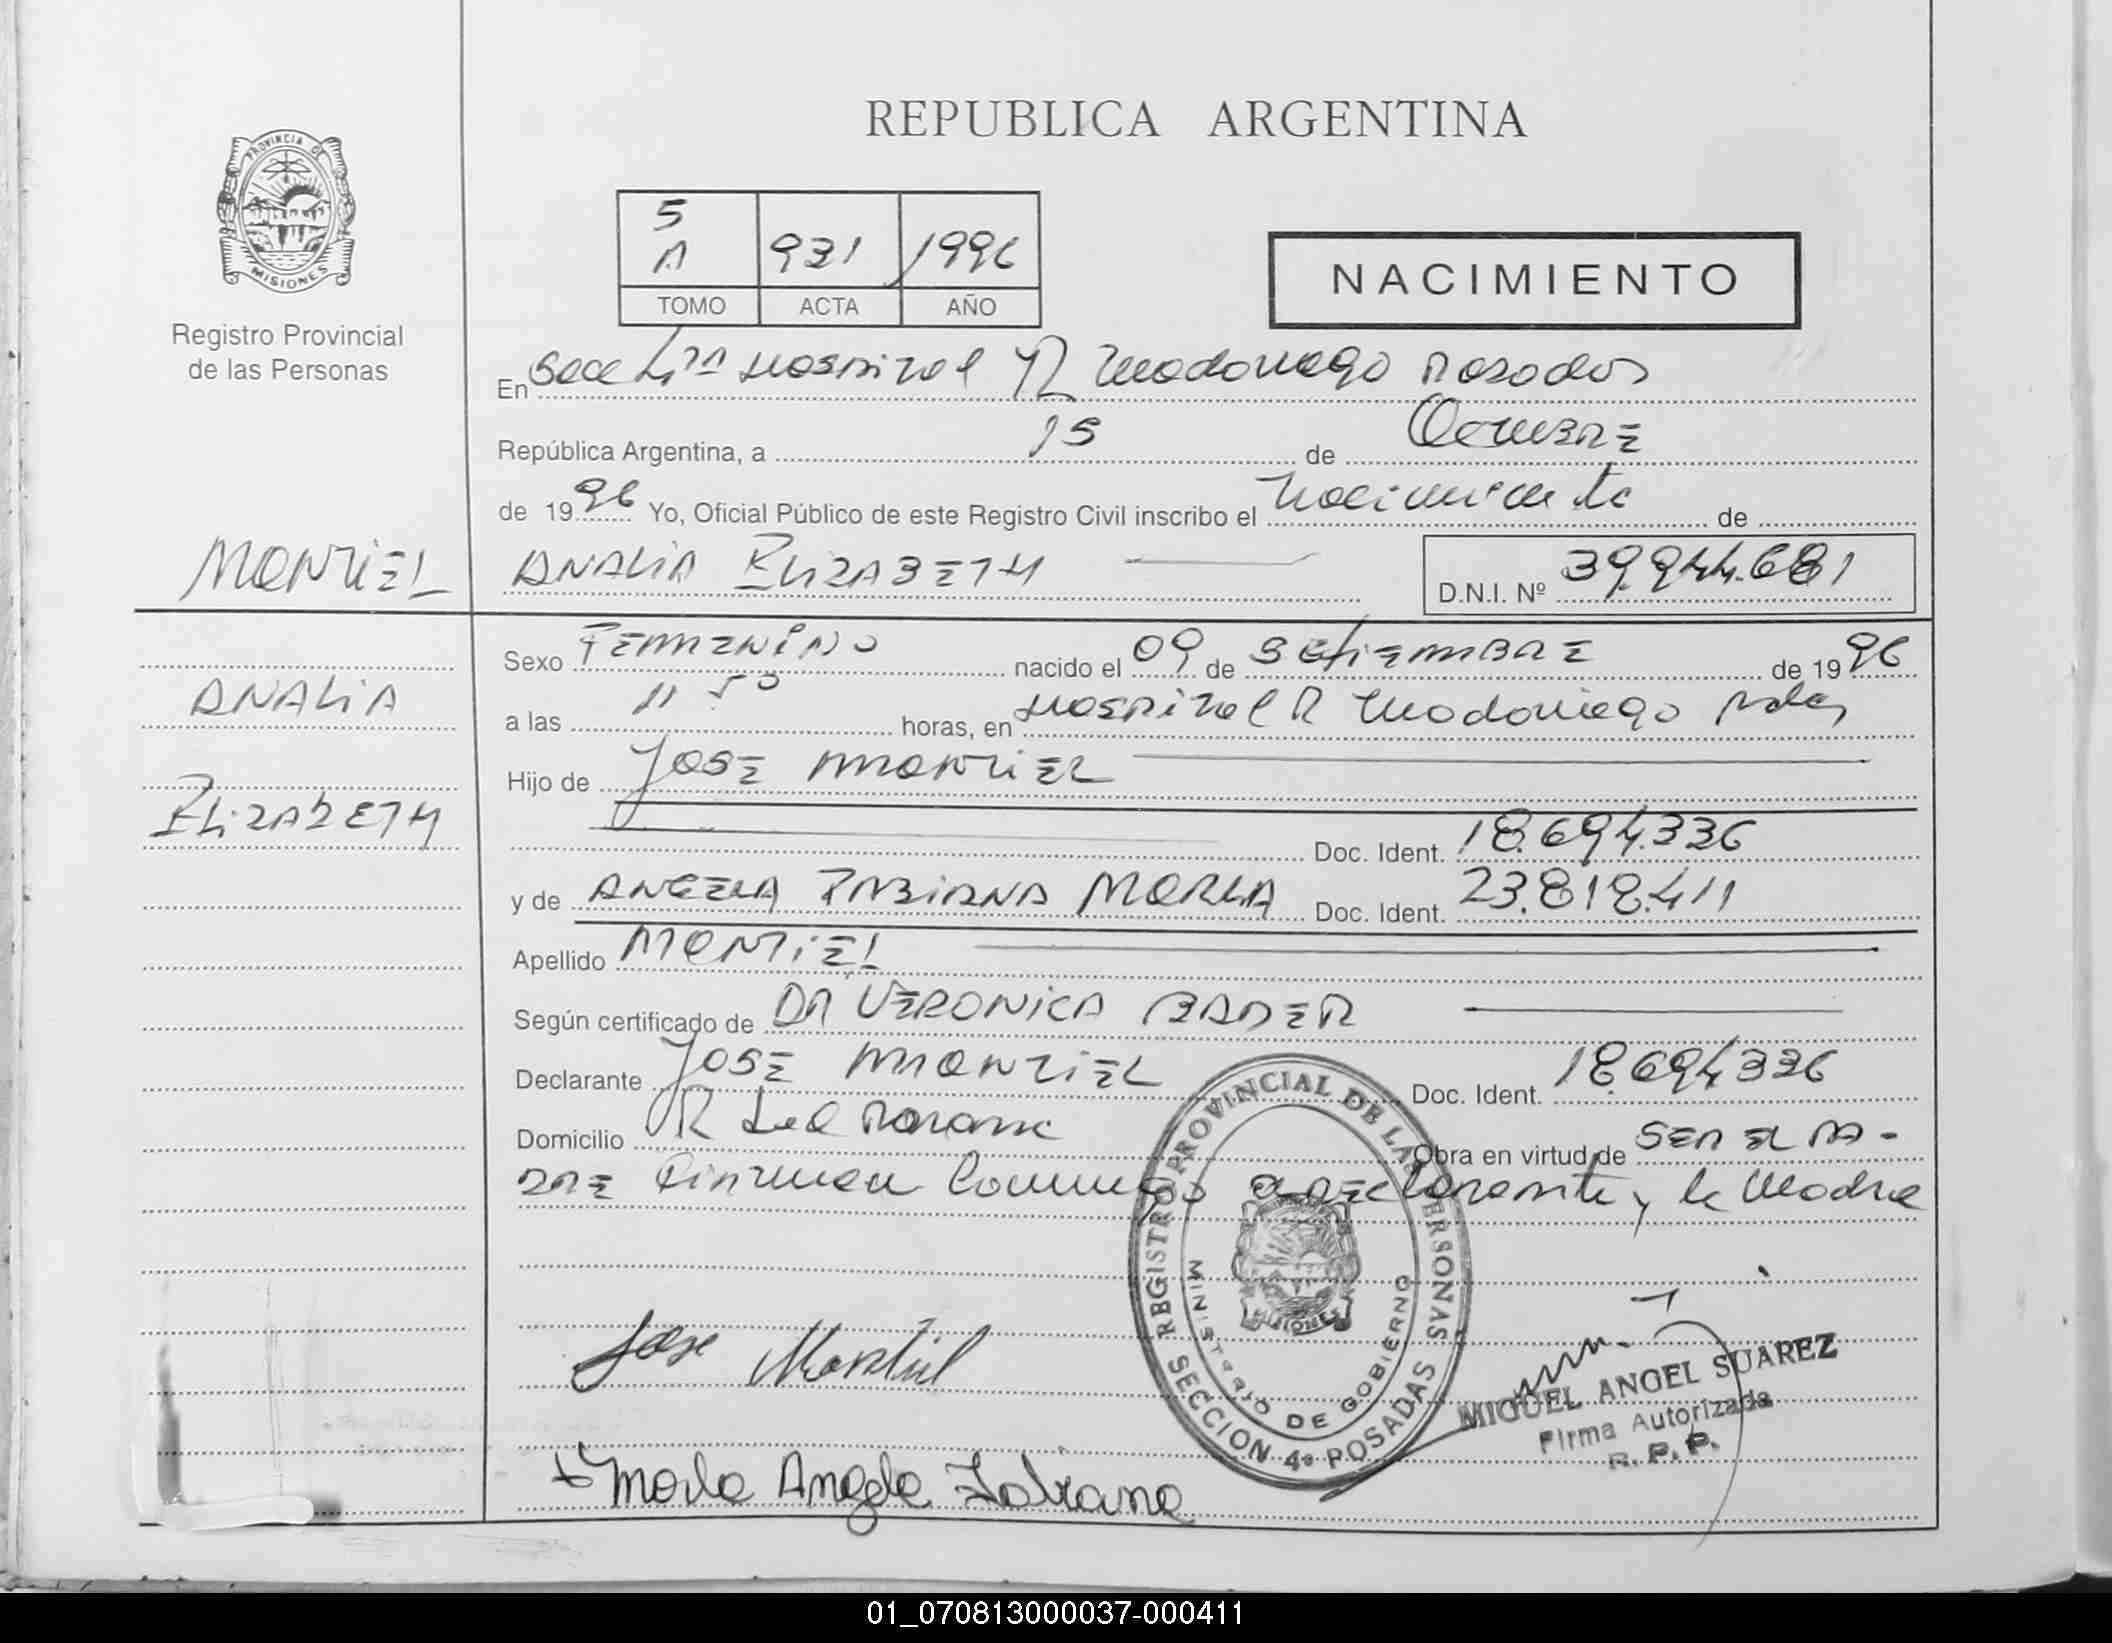 REPUBLICA ARGENTINA
PROVINCIA DE
MISIONES
Registro Provincial
de las Personas
5
A 931 1996
TOMO ACTA AÑO
NACIMIENTO
En Secc 4ta Hospital R Madariaga Posadas
República Argentina, a 15 de Octubre
de 1996 Yo, Oficial Público de este Registro Civil inscribo el nacimiento de
MONTIEL
ANALIA ELIZABETH
D.N.I. Nº 39.944.681
ANALIA
ELIZABETH
Sexo FEMENINO nacido el 09 de SETIEMBRE de 1996
a las 11 50 horas, en Hospital R Madariaga Pdas
Hijo de JOSE MONTIEL
Doc. Ident. 18.694.336
y de ANGELA FABIANA MORLA Doc. Ident. 23.818.411
Apellido MONTIEL
Según certificado de DRA VERONICA BADER
Declarante JOSE MONTIEL Doc. Ident. 18.694336
Domicilio Obra en virtud de SER EL PA-
DRE Firman Conmigo el DEClarante y la Madre
REGISTRO PROVINCIAL DE LAS PERSONAS
MINISTERIO DE GOBIERNO
MISIONES
SECCION 4ª POSADAS
Jose Montiel
MIGUEL ANGEL SUAREZ
Firma Autorizada
R. P. P.
Morla Angela Fabiana
01_070813000037-000411